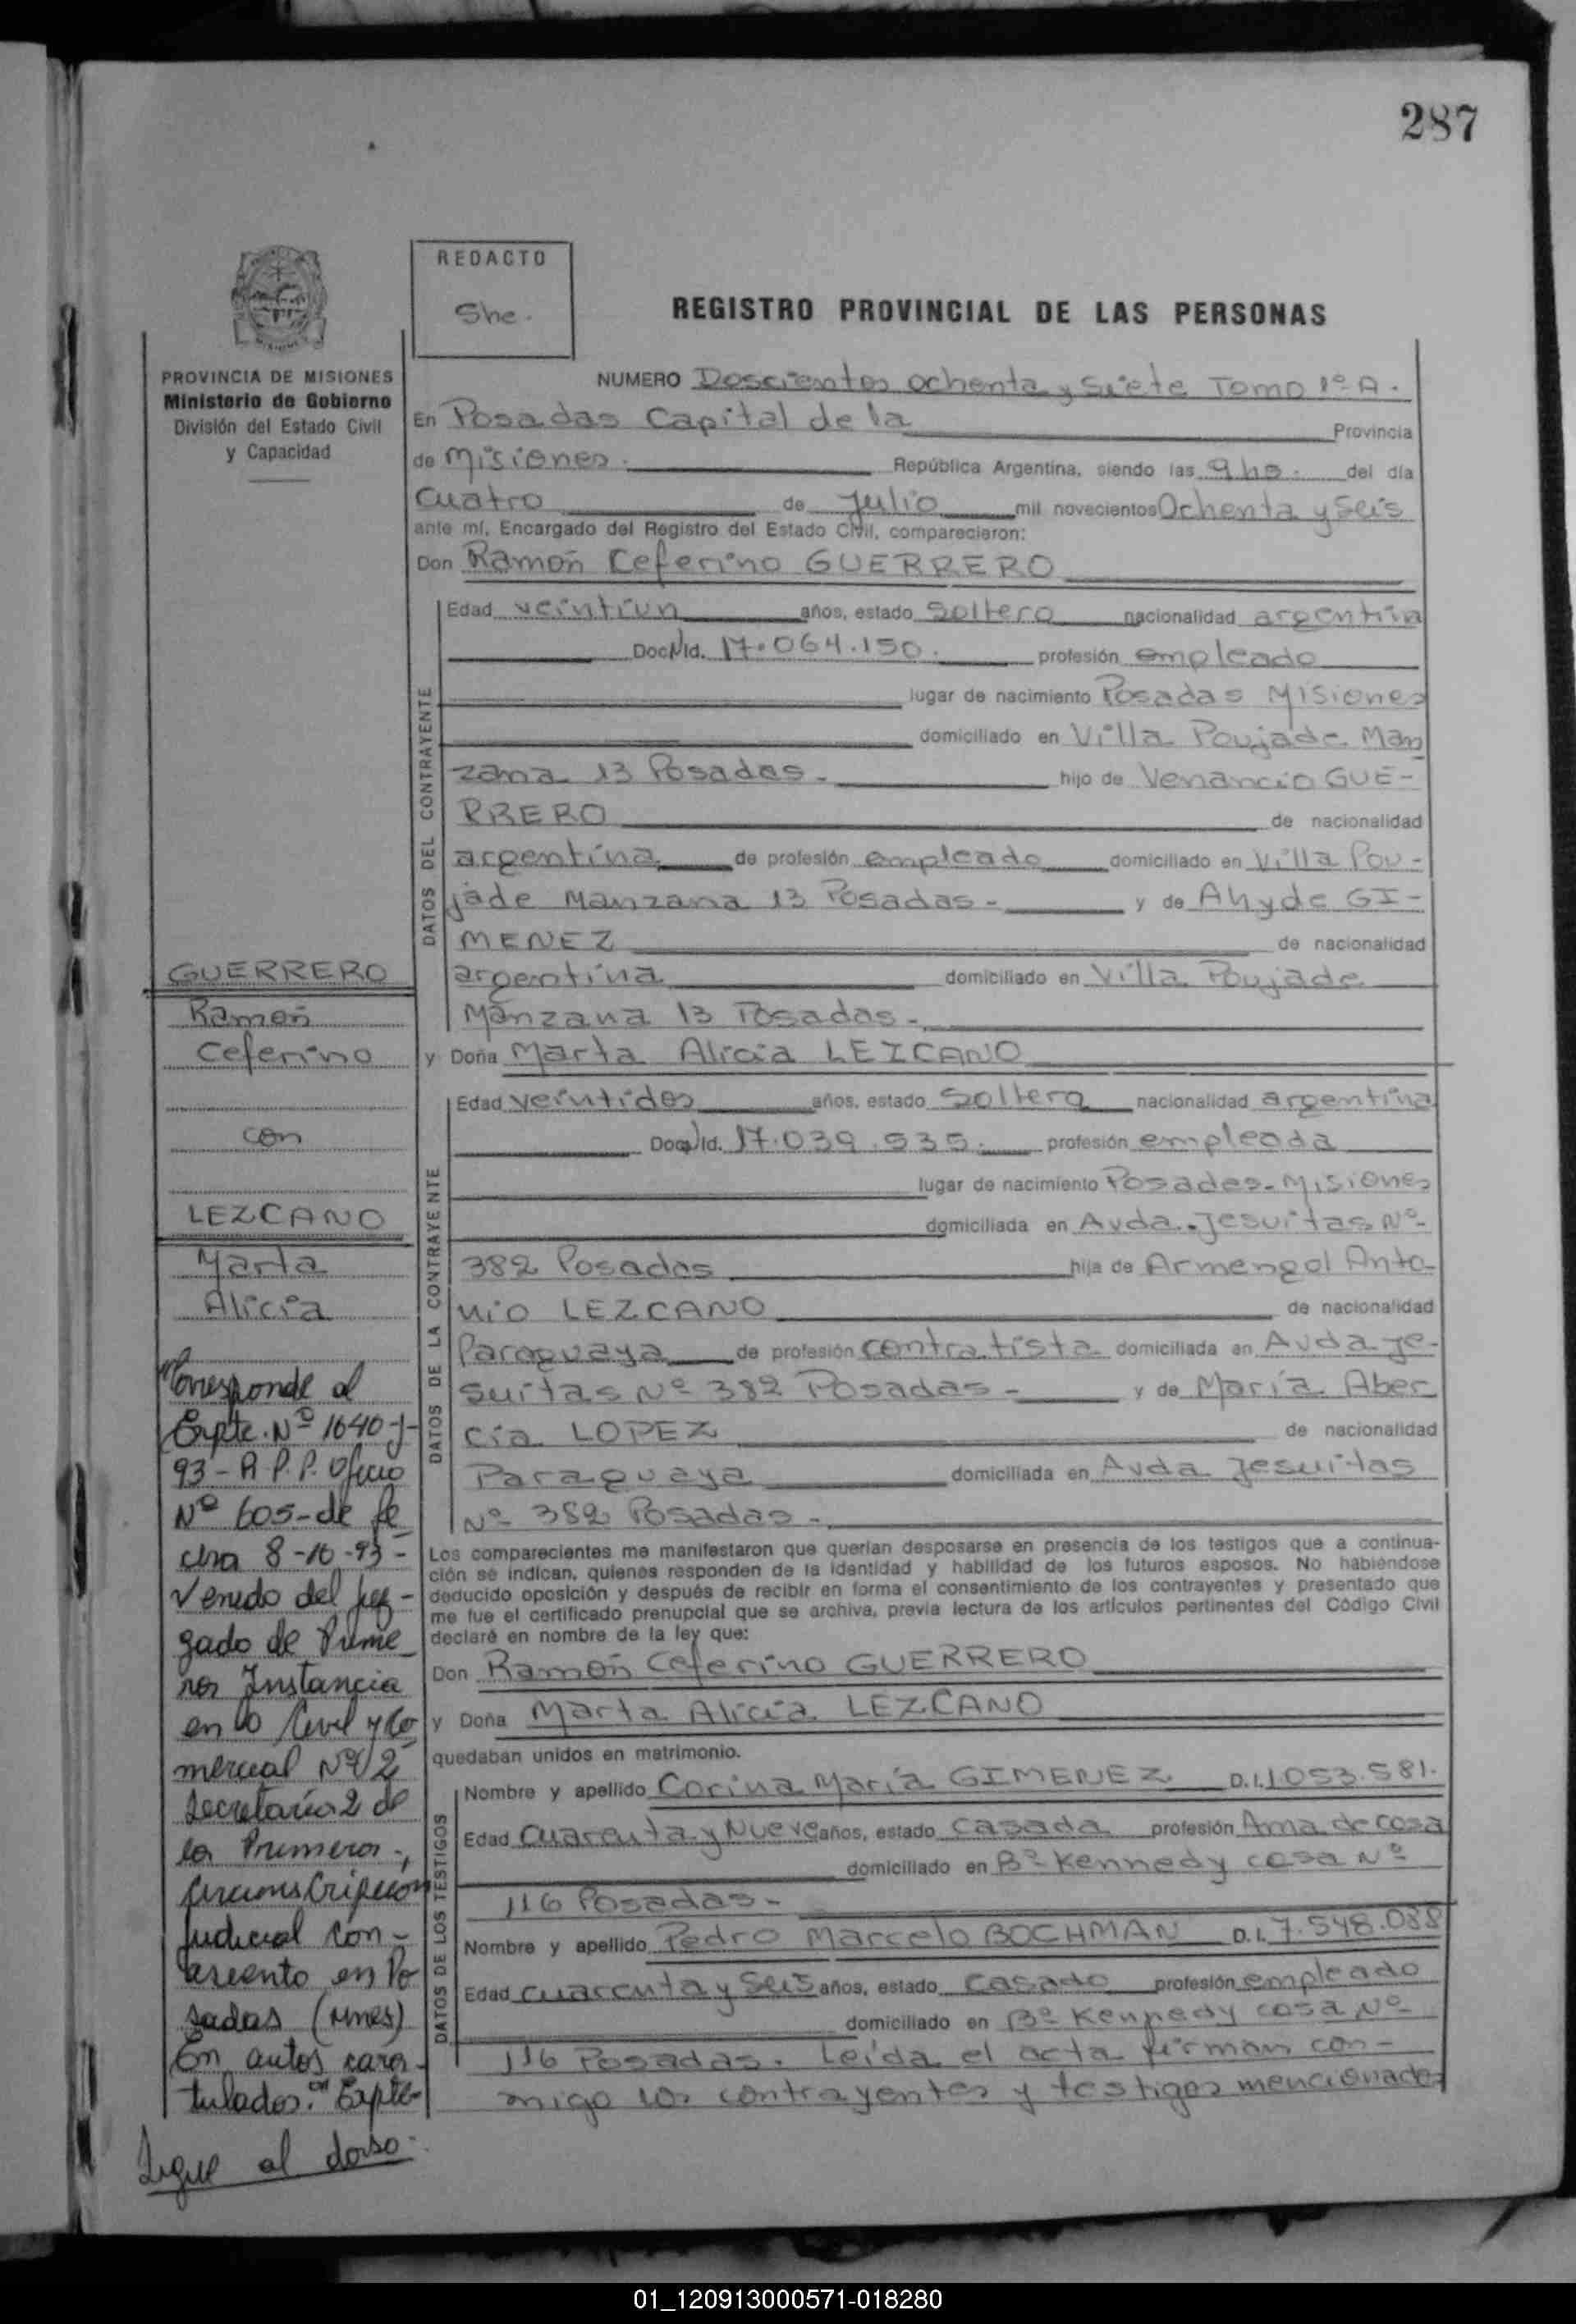 287
REDACTO
She.
REGISTRO PROVINCIAL DE LAS PERSONAS
PROVINCIA DE MISIONES
Ministerio de Gobierno
División del Estado Civil
y Capacidad
NUMERO Doscientos ochenta y Siete Tomo 1º A.
En Posadas Capital de la Provincia
de Misiones. República Argentina, siendo las 9 hs. del día
Cuatro de Julio mil novecientos Ochenta y Seis
ante mí, Encargado del Registro del Estado Civil, comparecieron:
Don Ramón Ceferino GUERRERO
DATOS DEL CONTRAYENTE
Edad veintiun años, estado Soltero nacionalidad argentina
Doc. Nº Id. 17.064.150. profesión empleado
lugar de nacimiento Posadas Misiones
domiciliado en Villa Poujade Man
zana 13 Posadas. hijo de Venancio GUE-
RRERO de nacionalidad
argentina de profesión empleado domiciliado en Villa Pou-
jade Manzana 13 Posadas - y de Ahyde GI-
MENEZ de nacionalidad
argentina domiciliado en Villa Poujade
Manzana 13 Posadas.
y Doña Marta Alicia LEZCANO
DATOS DE LA CONTRAYENTE
Edad veintidos años, estado Soltera nacionalidad argentina
Doc. Nº Id. 17.039.535. profesión empleada
lugar de nacimiento Posadas-Misiones
domiciliada en Avda. Jesuitas Nº
382 Posadas hija de Armengol Anto-
nio LEZCANO de nacionalidad
Paraguaya de profesión contratista domiciliada en Avda Je-
suitas Nº 382 Posadas - y de María Aber
cia LOPEZ de nacionalidad
Paraguaya domiciliada en Avda Jesuitas
Nº 382 Posadas -
Los comparecientes me manifestaron que querían desposarse en presencia de los testigos que a continua-
ción se indican, quienes responden de la identidad y habilidad de los futuros esposos. No habiéndose
deducido oposición y después de recibir en forma el consentimiento de los contrayentes y presentado que
me fue el certificado prenupcial que se archiva, previa lectura de los artículos pertinentes del Código Civil
declaré en nombre de la ley que:
Don Ramón Ceferino GUERRERO
y Doña Marta Alicia LEZCANO
quedaban unidos en matrimonio.
DATOS DE LOS TESTIGOS
Nombre y apellido Corina María GIMENEZ D.I. 1053.581.
Edad Cuarenta y Nueve años, estado casada profesión Ama de casa
domiciliado en Bº Kennedy casa Nº
116 Posadas -
Nombre y apellido Pedro Marcelo BOCHMAN D.I. 7.548.088
Edad cuarenta y Seis años, estado casado profesión empleado
domiciliado en Bº Kennedy casa Nº
116 Posadas. Leída el acta firman con-
migo los contrayentes y testigos mencionados
GUERRERO
Ramón
Ceferino
con
LEZCANO
Marta
Alicia
Corresponde al
Expte. Nº 1640-J-
93-R.P.P. Oficio
Nº 605-de fe
cha 8-10-93-
Venido del Juz-
gado de Prime
ra Instancia
en lo Civil y Co
mercial Nº 2
Secretaría 2 de
la Primera
Circunscripción
Judicial con-
asiento en Po
sadas (Mnes)
En autos cara-
tulados: "Expte-
Sigue al dorso.
01_120913000571-018280